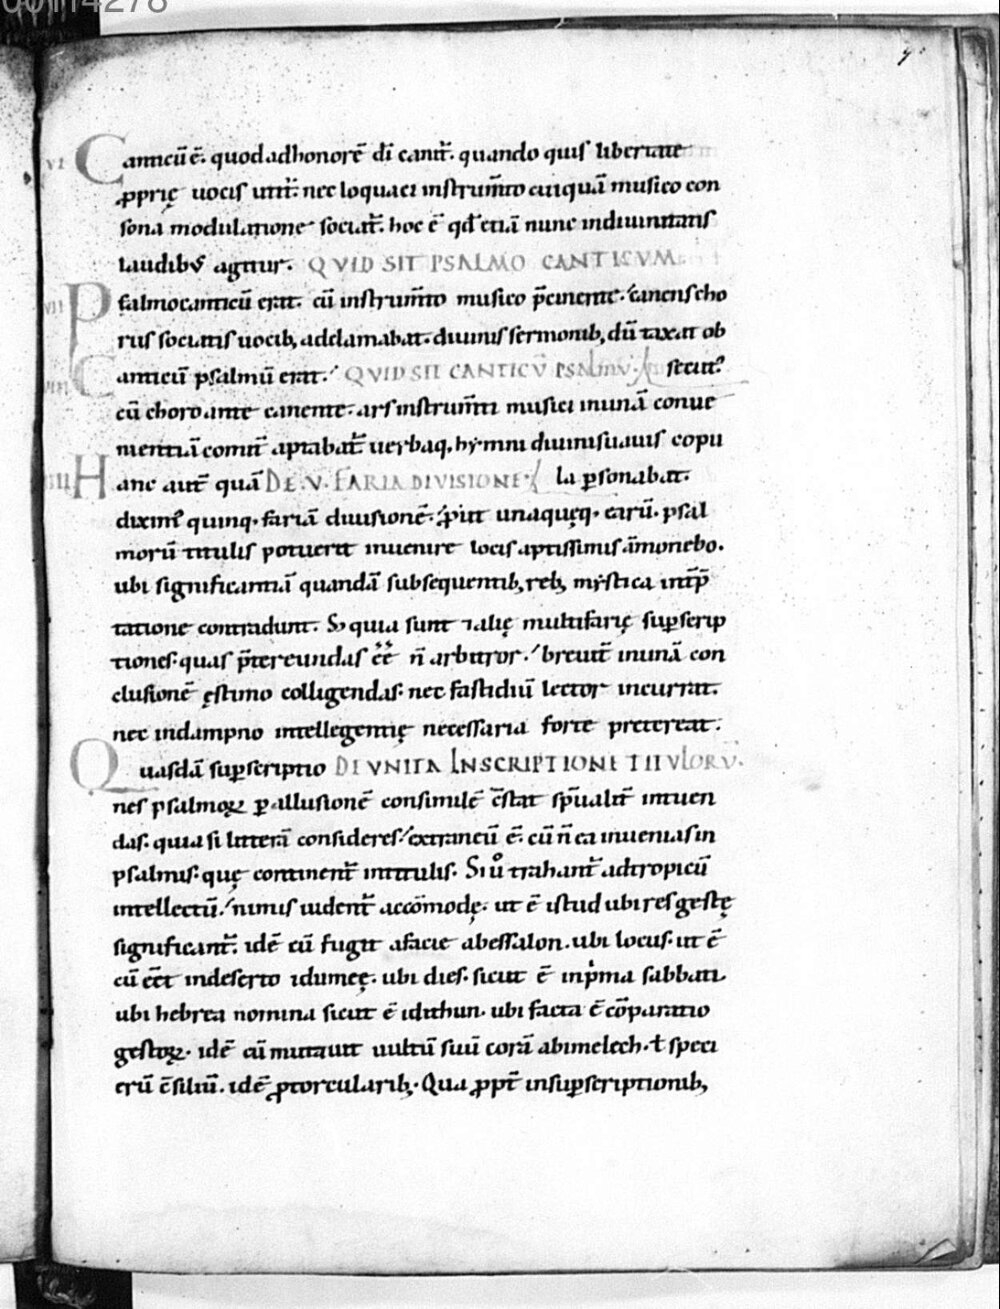 VI Canticū ē. quod ad honorē dī canit̄. quando quis libertate
ꝓprię uocis utit̄. nec loquaci instrum̄to cuiquā musico con
sona modulatione sociat̄. hoc ē qđ etiā nunc in diuinitatis
laudibꝰ agitur. QVID SIT PSALMO CANTICVM.
VII Psalmocanticū erat. cū instrum̄to musico p̄cinente. canens cho
rus sociatis uocib; adclamabat. diuinis sermonib; dū taxat ob
VIII Canticū psalmū erat. QVID SIT CANTICŪ PSALMV. secut᷒
cū choro ante canente. ars instrum̄ti musici in unā conue
nientiā comit̄ aptabat̄ uerbaq. hymni diuini suauis copu
VIIII Hanc aut̄ quā DE .V. FARIA DIVISIONE. la ꝑsonabat.
dixim᷒ quinq. fariā diuisionē. ꝓut unaquęq. earū. psal
morū titulis potuerit inuenire locis aptissimis āmonebo.
ubi significantiā quandā subsequentib; reb; mystica int̄p̄
tatione contradunt. S; quia sunt talię multifarię suꝑscrip
tiones. quas p̄tereundas ēē n̄ arbitror. breuit̄ in unā con
clusionē ęstimo colligendas. nec fastidiū lector incurrat.
nec in dampno intellegentię necessaria forte pretereat.
Quasdā suꝑscriptio DE VNITA INSCRIPTIONE TITVLORV̄.
nes psalmoꝝ ꝑ allusionē consimilē c̄stat sp̄ualit̄ intuen
das. quia si litterā consideres. extraneū ē. cū n̄ ea inuenias in
psalmis. quę continent̄ in titulis. Si ů trahant̄ ad tropicū
intellectū. nimis uident̄ accōmodę. ut ē istud ubi res gestę
significant̄. idē cū fugit a facie abessalon. ubi locus. ut ē
cū eēt in deserto idumeę. ubi dies. sicut ē in pͥma sabbati.
ubi hebrea nomina sicut ē idithun. ubi facta ē cōparatio
gestoꝝ. idē cū mutauit uultū suū corā abimelech. ł speci
erū c̄siliū. idē ꝓ torcularib;. Qua ꝓpt̄ in suꝑscriptionib;